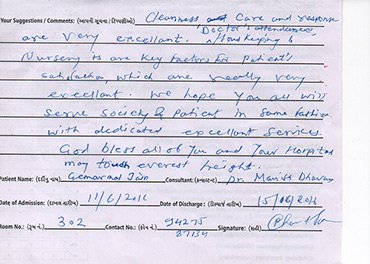 Your Suggestions / Comments: (આપની સૂચના / ટિપ્પણીઓ) Cleanness and Care and response
are very excellant. Doctor's attendence, House Keeping &
Nursery is are key factors for patient's
satisfaction which are really very
excellant. We hope you all will
serve society & patient in same fashion
with dedicated excellant services.
God bless all of you and your Hospital
may touch everest height.
Patient Name: (દર્દીનું નામ) Jain Consultant: Dr. Manish
Date of Admission: (દાખલ તારીખ) 11/6/2016 Date of Discharge: 15/06/2016
Room No.: (રૂમ નં.) 302 Contact No.: (ફોન નં.) 94275 Signature: (સહી)
87134